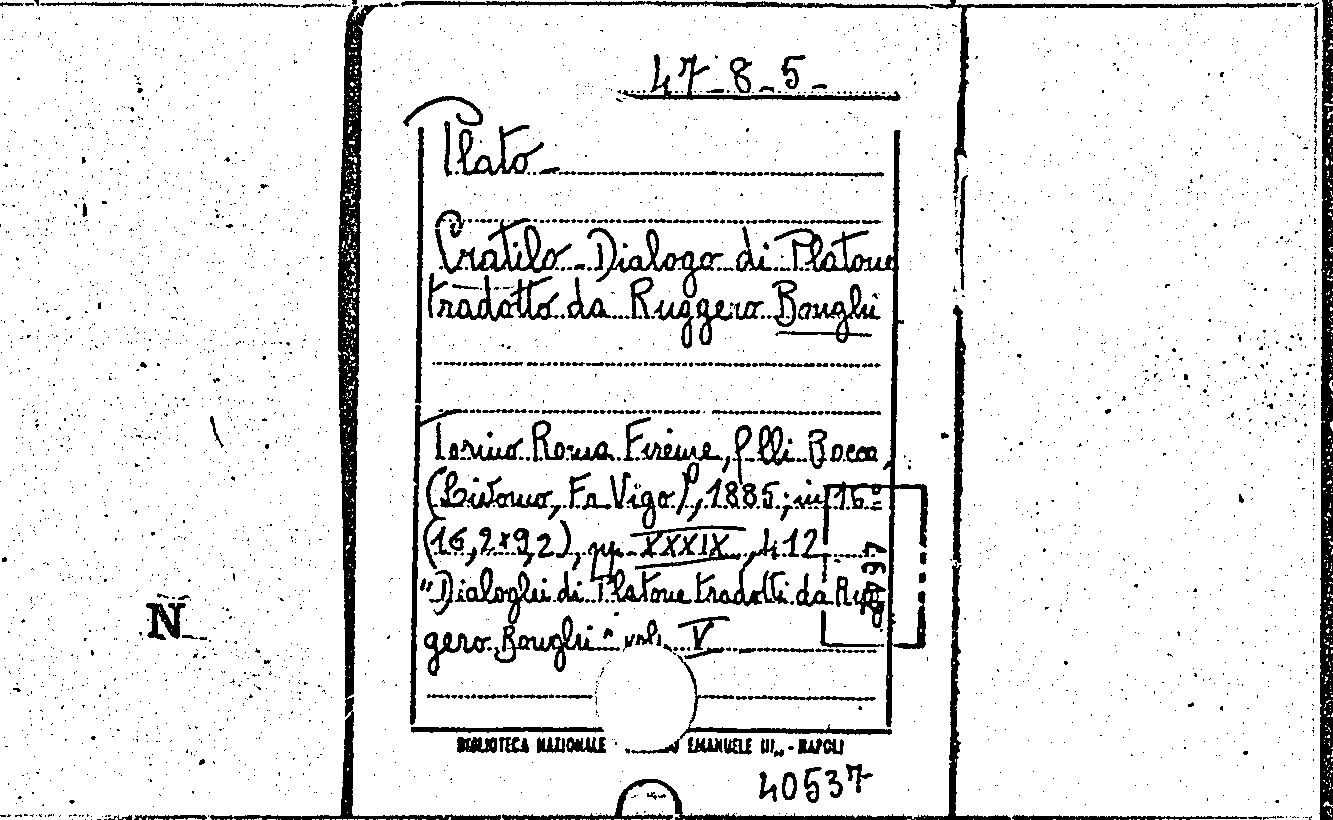 47-8-5-
Plato-
Cratilo - Dialogo di Platone
tradotto da Ruggero Bonghi
Torino Roma Firenze, f.lli Bocca,
(Livorno, Fr. Vigo), 1885; in 16º
(16,2x9,2), pp. XXXIX, 412
"Dialoghi di Platone tradotti da Rug
gero Bonghi" vol. V
N
BIBLIOTECA NAZIONALE EMANUELE III„ - NAPOLI
40537